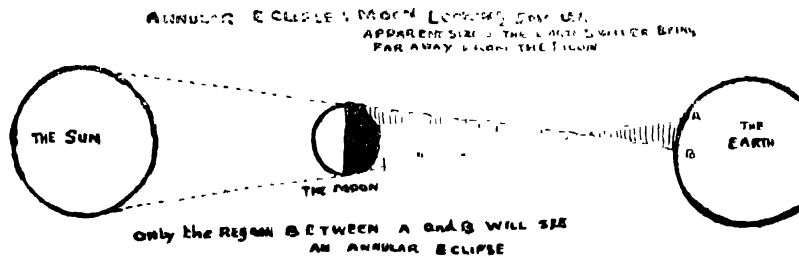 ANNULAR ECLIPSE : MOON
APPARENT SIZE THE EARTH BEING
FAR AWAY FROM THE MOON
THE SUN
A
THE
EARTH
B
THE MOON
Only the REGION BETWEEN A and B WILL SEE
AN ANNULAR ECLIPSE